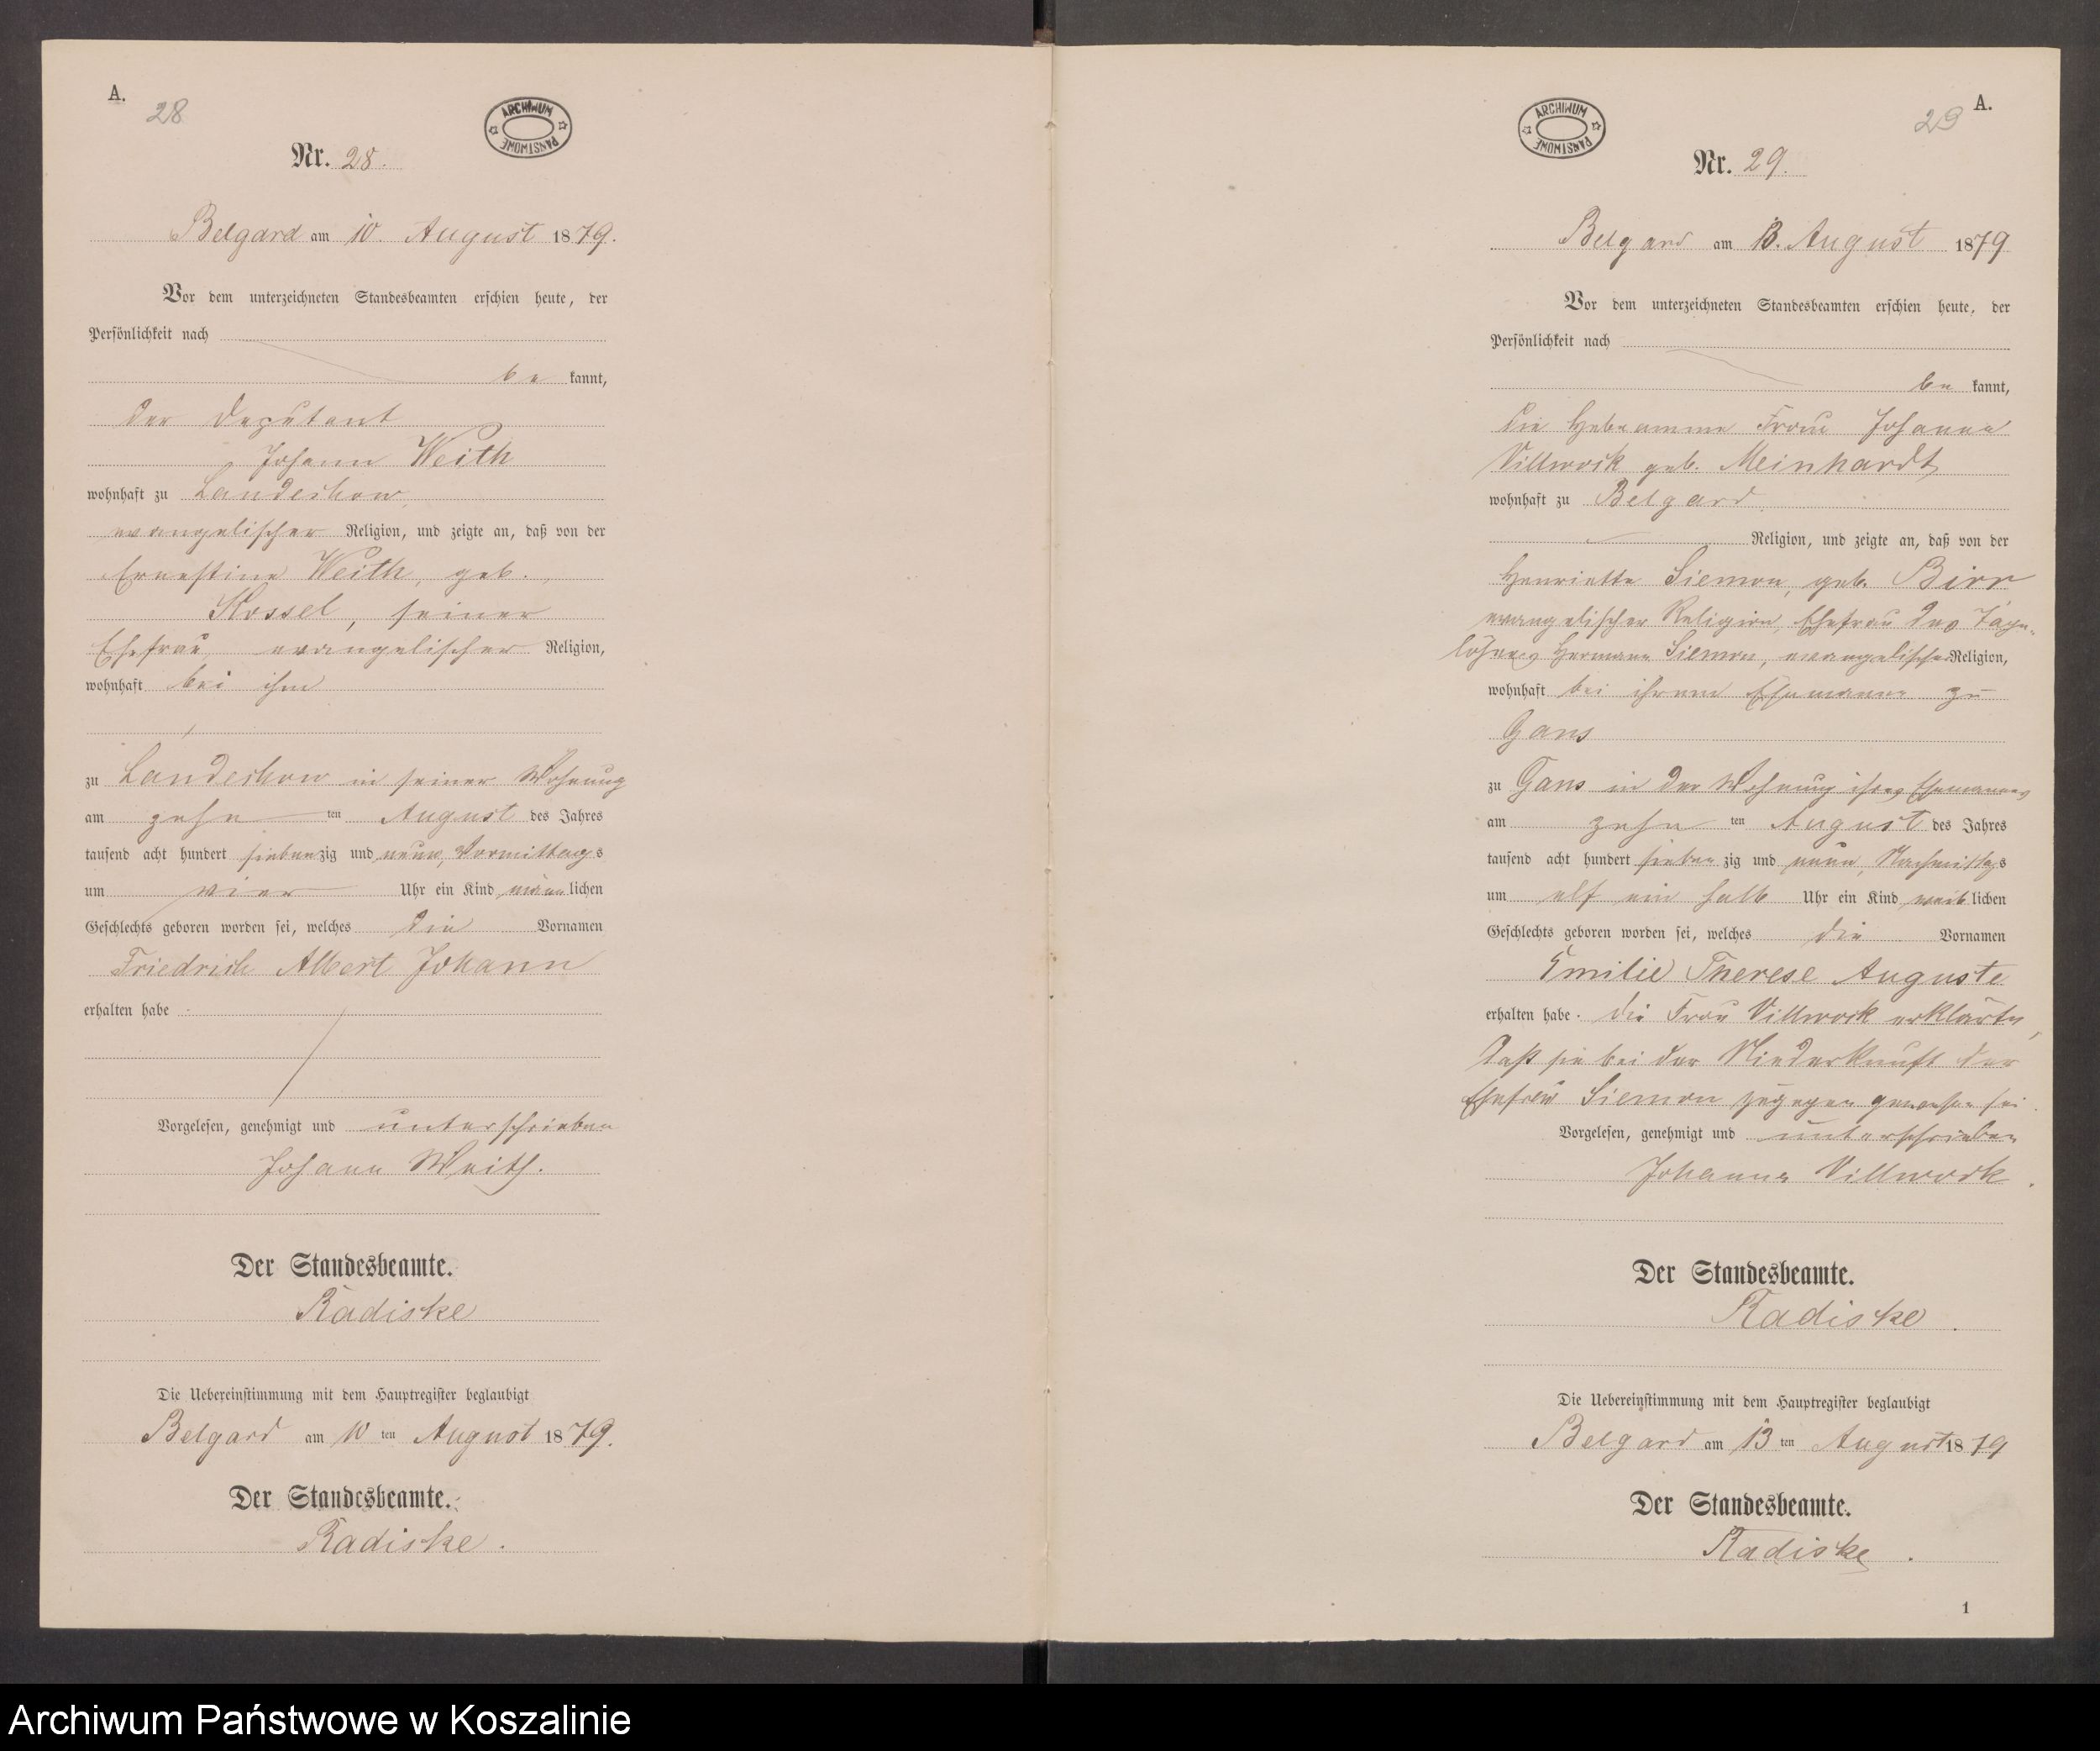 A.
28
ARCHIWUM PAŃSTWOWE
Nr. 28.
Belgard am 10. August 1879.
Vor dem unterzeichneten Standesbeamten erschien heute, der
Persönlichkeit nach
be kannt,
der Deputant
Johann Weith
wohnhaft zu Landechow,
evangelischer Religion, und zeigte an, daß von der
Ernestine Weith, geb.
Kossel, seiner
Ehefrau, evangelischer Religion,
wohnhaft bei ihm
zu Landechow in seiner Wohnung
am zehn ten August des Jahres
tausend acht hundert siebenzig und neun, Vormittags
um vier Uhr ein Kind männlichen
Geschlechts geboren worden sei, welches die Vornamen
Friedrich Albert Johann
erhalten habe
Vorgelesen, genehmigt und unterschrieben
Johann Weith.
Der Standesbeamte.
Radiske
Die Uebereinstimmung mit dem Hauptregister beglaubigt
Belgard am 10 ten August 1879.
Der Standesbeamte.
Radiske.
A.
29
ARCHIWUM PAŃSTWOWE
Nr. 29.
Belgard am 13. August 1879
Vor dem unterzeichneten Standesbeamten erschien heute, der
Persönlichkeit nach
be kannt,
die Hebeamme Frau Johanna
Villwock geb. Meinhardt
wohnhaft zu Belgard
Religion, und zeigte an, daß von der
Henriette Siemon, geb. Birr
evangelischer Religion, Ehefrau des Tage-
löhners Hermann Siemon, evangelischer Religion,
wohnhaft bei ihrem Ehemanne zu
Gans
zu Gans in der Wohnung ihres Ehemannes
am zehn ten August des Jahres
tausend acht hundert sieben zig und neun, Nachmittags
um elf ein halb Uhr ein Kind weiblichen
Geschlechts geboren worden sei, welches die Vornamen
Emilie Therese Auguste
erhalten habe. die Frau Villwock erklärte,
daß sie bei der Niederkunft der
Ehefrau Siemon zugegen gewesen sei.
Vorgelesen, genehmigt und unterschrieben
Johanna Villwock.
Der Standesbeamte.
Radiske.
Die Uebereinstimmung mit dem Hauptregister beglaubigt
Belgard am 13 ten August 1879
Der Standesbeamte.
Radiske.
1
Archiwum Państwowe w Koszalinie